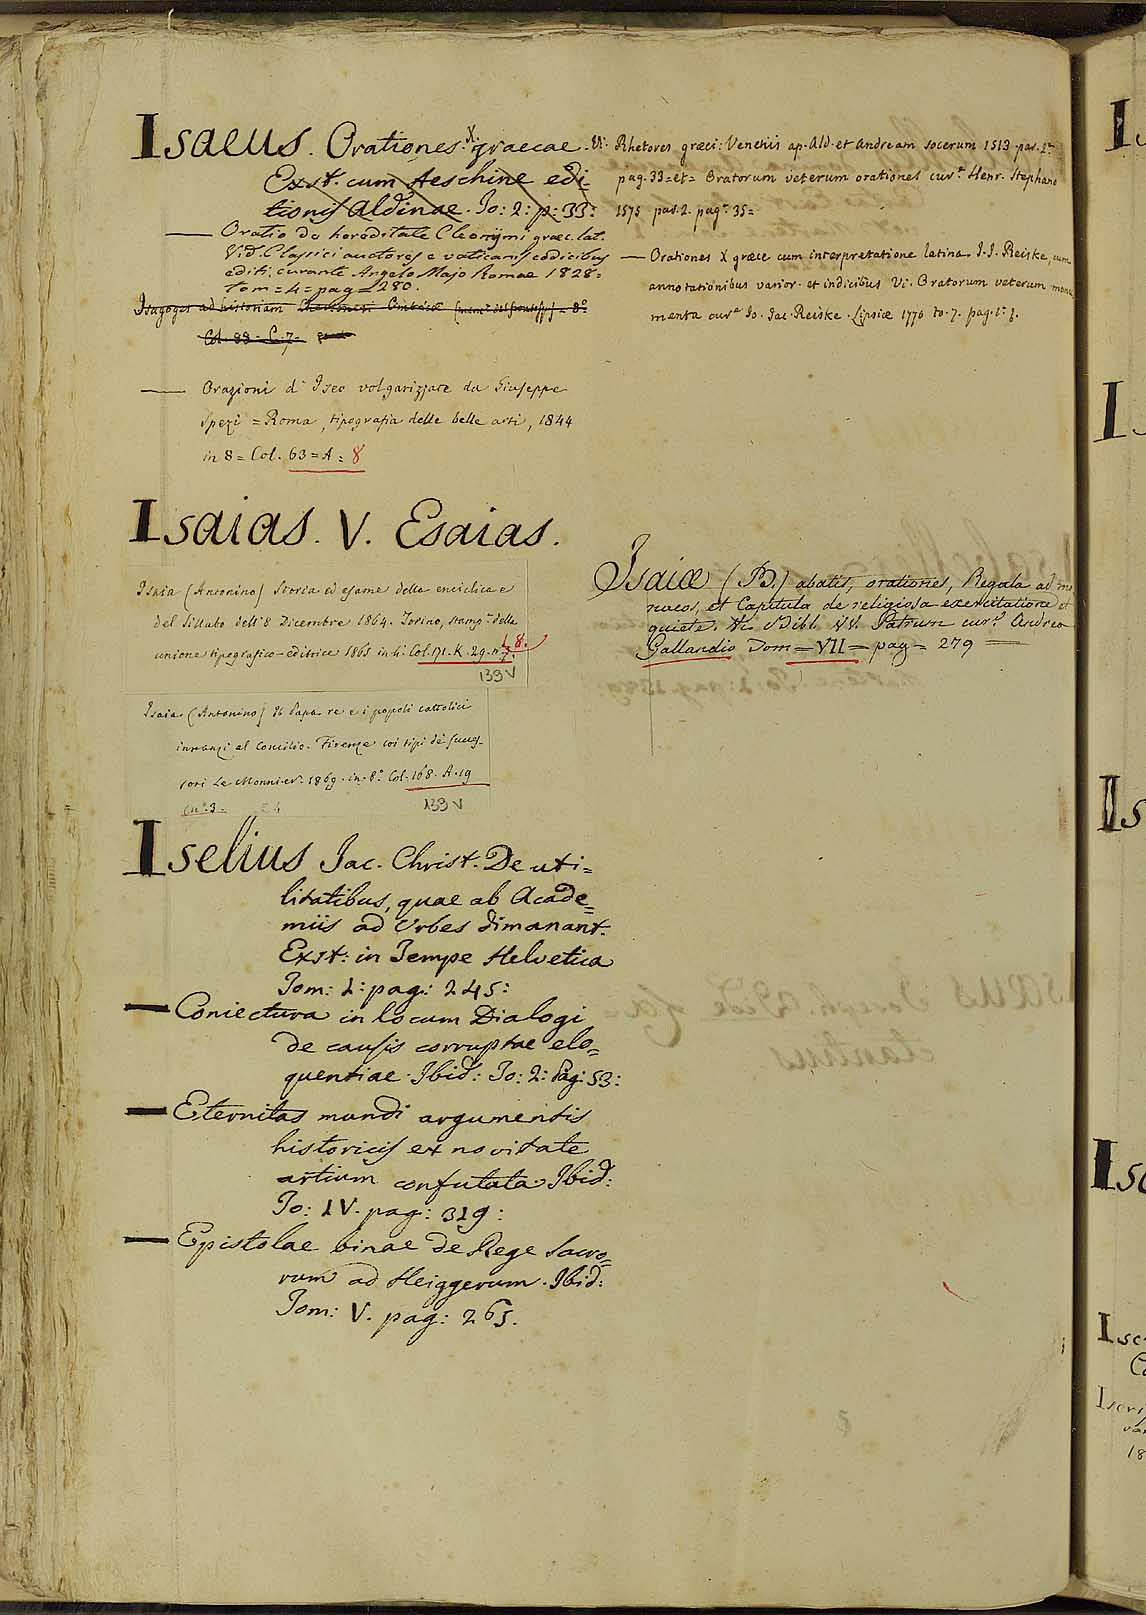 Isaeus. Orationes X. graecae. Vi. Rhetores græci: Venetiis ap. Ald. et Andream socerum 1513 par. 2ª
pag. 33 = et = Oratorum veterum orationes curª Henr. Stephano
1575 par. 2. pag. 35 =
Exst. cum Aeschine edi-
tionis Aldinae. To: 2: p: 33:
— Oratio de hereditate Cleonymi græc. lat.
Vid. Classici auctores e vaticanis codicibus
editi, curante Angelo Majo Romae 1828 =
tom = 4 = pag = 280.
Isagoges ad historiam
Col. 89 - C. 7 =
— Orationes X græce cum interpretatione latina J. J. Reiske, cum
annotationibus varior. et indicibus Vi. Oratorum veterum monu
menta curª Jo. Jac. Reiske. Lipsiæ 1770 to. 7. pag. 1:
— Orazioni d' Iseo volgarizzate da Giuseppe
Spezi = Roma, tipografia delle belle arti, 1844
in 8 = Col. 63 = A = 8
Isaias. V. Esaias.
Isaia (Antonino) Storia ed esame della enciclica e
del Sillabo dell' 8 Dicembre 1864. Torino, stampª della
unione tipografico-editrice 1865 in 4: Col. 171. K. 29. nº 18.
139 V
Isaia (Antonino) Il Papa re e i popoli cattolici
innanzi al Concilio. Firenze coi tipi de' succes-
sori Le Monnier. 1869. in-8º Col. 168. A. 19
(nº. 3 =
139 V
Isaiæ (B.) abatis, orationes, Regula ad mo
nacos, et Capitula de religiosa exercitatione et
quiete. Vi. Bibl. VV. Patrum curª Andrea
Gallandio Tom = VII = pag = 279 =
Iselius Jac. Christ. De uti=
litatibus, quae ab Acade=
miis ad Urbes dimanant.
Exst: in Tempe Helvetica
Tom: 1: pag: 245:
— Coniectura in locum Dialogi
de causis corruptae elo=
quentiae. Ibid: To: 2: Pag: 53:
— Eternitas mundi argumentis
historicis ex novitate
artium confutata. Ibid:
To: IV. pag: 319:
— Epistolae binae de Rege Sacro=
rum ad Heiggerum. Ibid:
Tom: V. pag: 265.